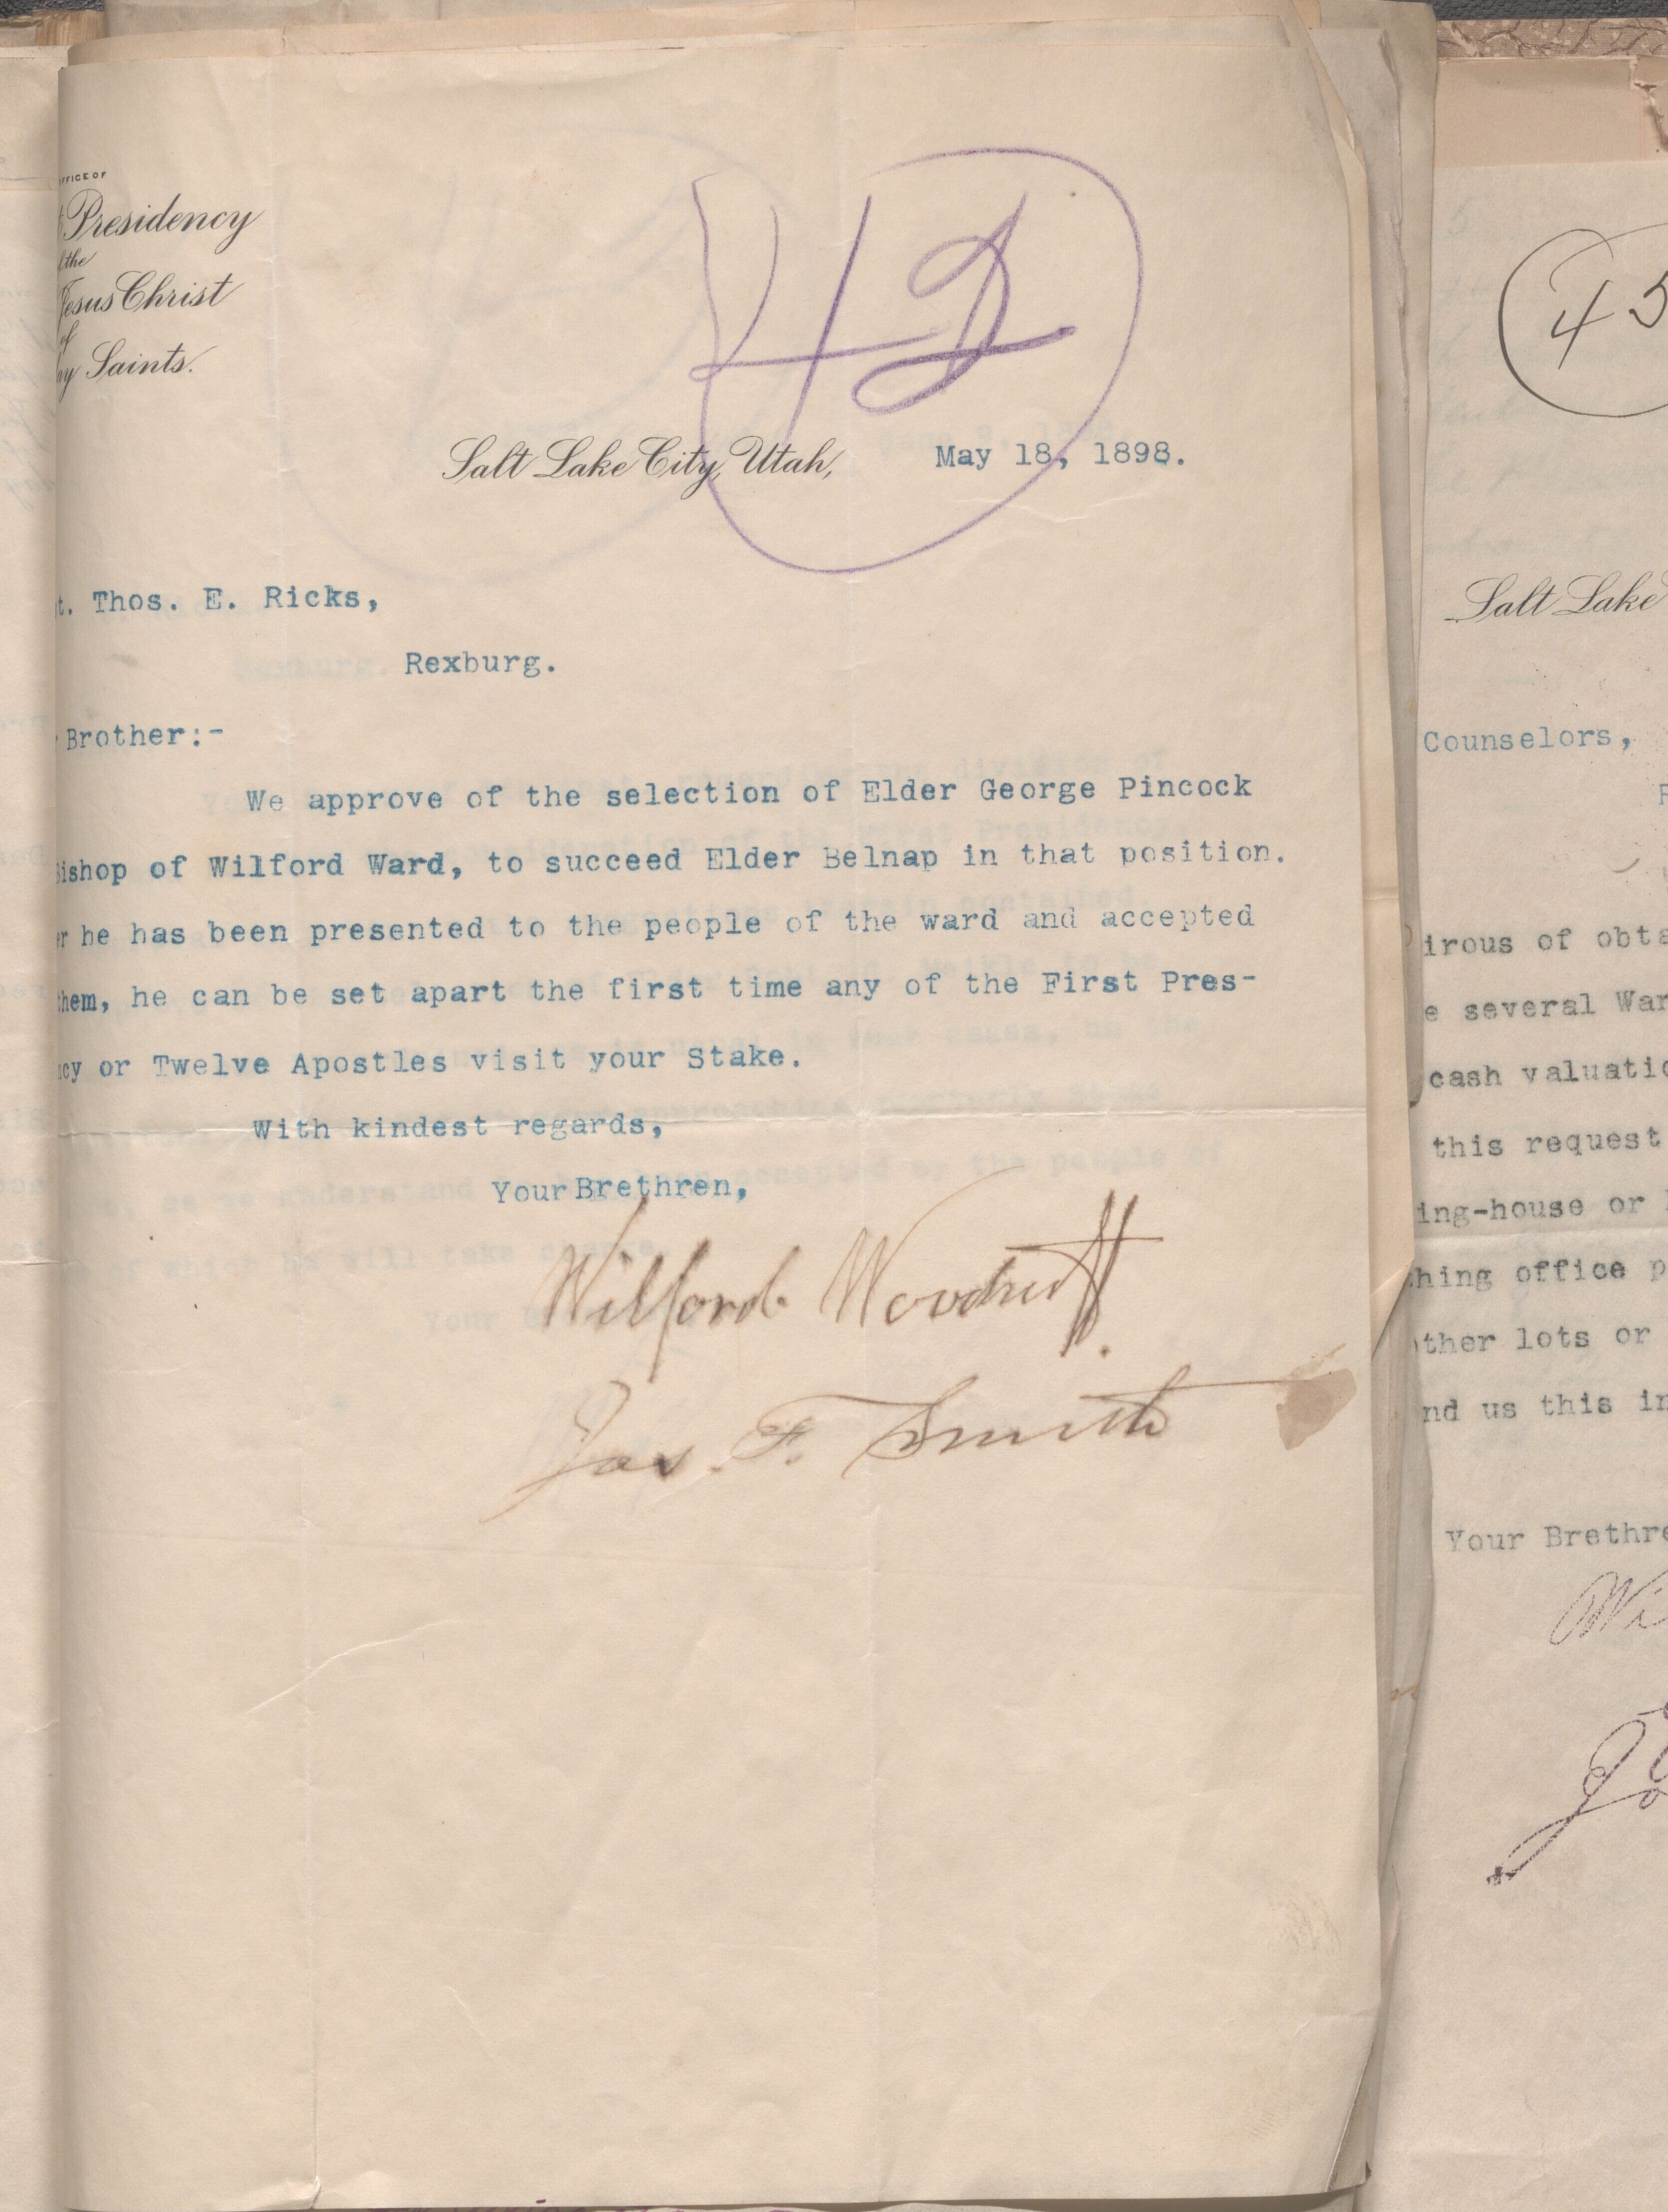 OFFICE OF
Presidency
the
Jesus Christ
of
Saints.
Salt Lake City, Utah, May 18, 1898.
t. Thos. E. Ricks,
Rexburg.
Brother:-
We approve of the selection of Elder George Pincock
Bishop of Wilford Ward, to succeed Elder Belnap in that position.
er he has been presented to the people of the ward and accepted
them, he can be set apart the first time any of the First Pres-
ncy or Twelve Apostles visit your Stake.
With kindest regards,
Your Brethren,
Wilford Woodruff.
Jos. F. Smith
45
Salt Lake
Counselors,
irous of obta
e several War
cash valuatio
this request
ing-house or
hing office p
ther lots or
nd us this in
Your Brethre
Wi
Jo